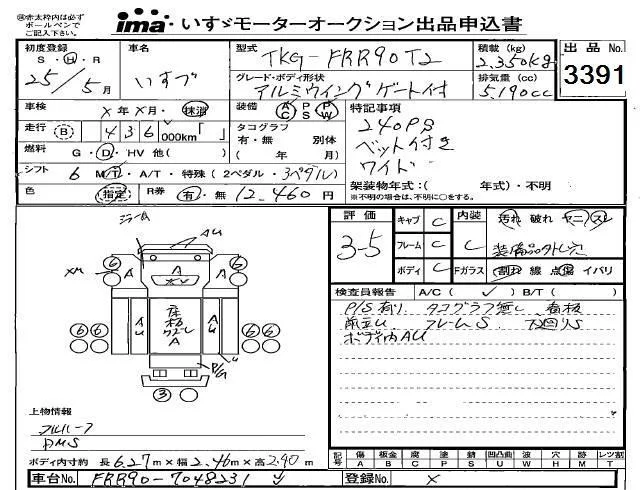 ㊟赤太枠内は必ず
ボールペンで
ご記入下さい。
ima いすゞモーターオークション出品申込書
初度登録 S・H・R 25年 5月
車名 いすゞ
型式 TKG-FRR90T2
積載(kg) 2,350kg
出品No. 3391
グレード・ボディ形状 アルミウイングゲート付
排気量(cc) 5,190cc
車検 ×年×月・抹消
装備 AC PS PW
特記事項
走行 (B) 436,000km「 」
タコグラフ 有・無 別体 ( 年 月)
240PS
ベット付き
ワイド
燃料 G・D・HV 他( )
シフト 6 MT・A/T・特殊(2ペダル・3ペダル)
架装物年式:( 年式)・不明
※不明の場合は、不明に○をする。
色 指定 R券 有・無 12,460円
評価 3-5
キャブ C
フレーム C
ボディ C
内装 C
Fガラス
汚れ 破れ ヤニ スレ
装備品外し穴
割れ 線 点傷 イパリ
検査員報告 A/C(✓)・B/T( )
P/S有り タコグラフ無し 看板
前歪U フレームS 下回りS
ボディ内AU
ミラーA
AU
6 6
×M A A A
床板
クズレ
A
AU AU
6 6 6 6
U
P/G
3
上物情報
フルハーフ
PMS
ボディ内寸約 長6.27m×幅2.46m×高2.40m
記号 傷A 板金B 腐C 塗P 錆S 凹凸曲U 波W 穴H 跡M レツ割T
車台No. FRR90-7048231
登録No. ×